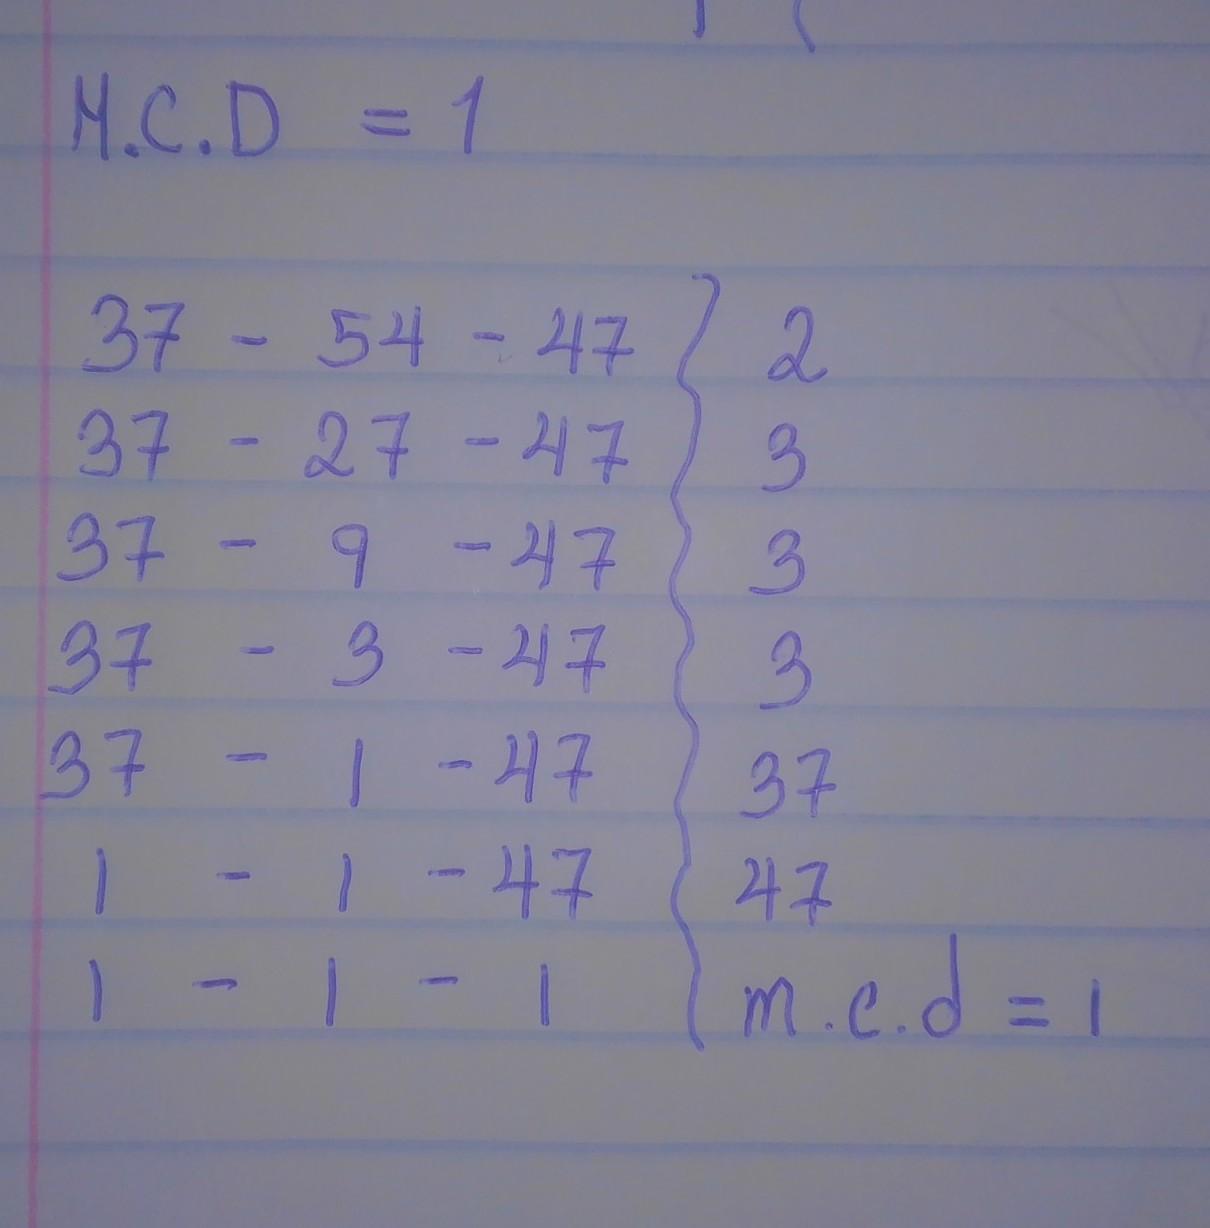 M.C.D = 1
37 - 54 - 47 2
37 - 27 - 47 3
37 - 9 - 47 3
37 - 3 - 47 3
37 - 1 - 47 37
1 - 1 - 47 47
1 - 1 - 1 m.c.d = 1